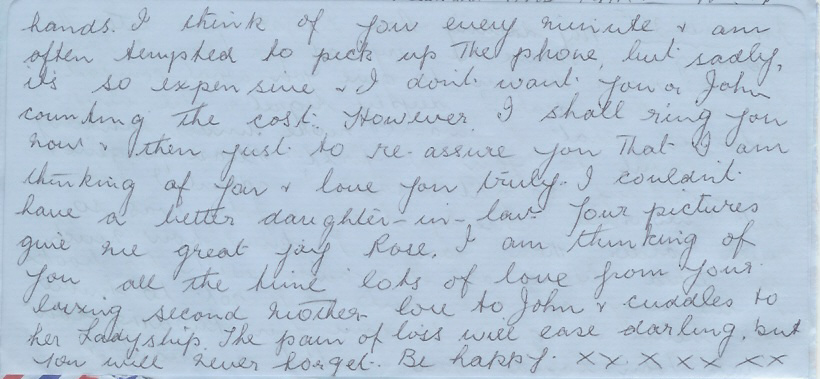 hands. I think of you every minute & am
often tempted to pick up the phone, but sadly,
it's so expensive & I don't want you or John
counting the cost. However I shall ring you
now & then just to re-assure you that I am
thinking of you & love you truly. I couldn't
have a better daughter-in-law. Your pictures
give me great joy Rose. I am thinking of
you all the time lots of love from your
loving second mother love to John & cuddles to
her Ladyship. The pain of loss will ease darling, but
you will never forget. Be happy. x x x x x x x